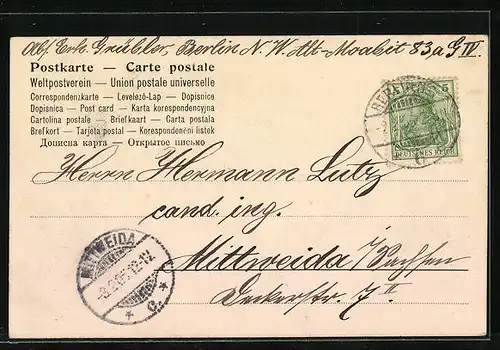 Abs. Erh. Grübler, Berlin N.W. Alt-Moabit 83,a G IV.
Postkarte — Carte postale
Weltpostverein — Union postale universelle
Correspondenzkarte — Levelező-Lap — Dopisnice
Dopisnica — Post card — Karta korespondencyjna
Cartolina postale — Briefkaart — Carta postala
Brefkort — Tarjeta postal — Korespondenční lístek
Дописна карта — Открытое письмо
5
DEUTSCHES REICH
Herrn Hermann Lutz
cand. ing.
Mittweida i/Sachsen
Deckerstr. 7 II
MITTWEIDA
12-1V.
* c. *